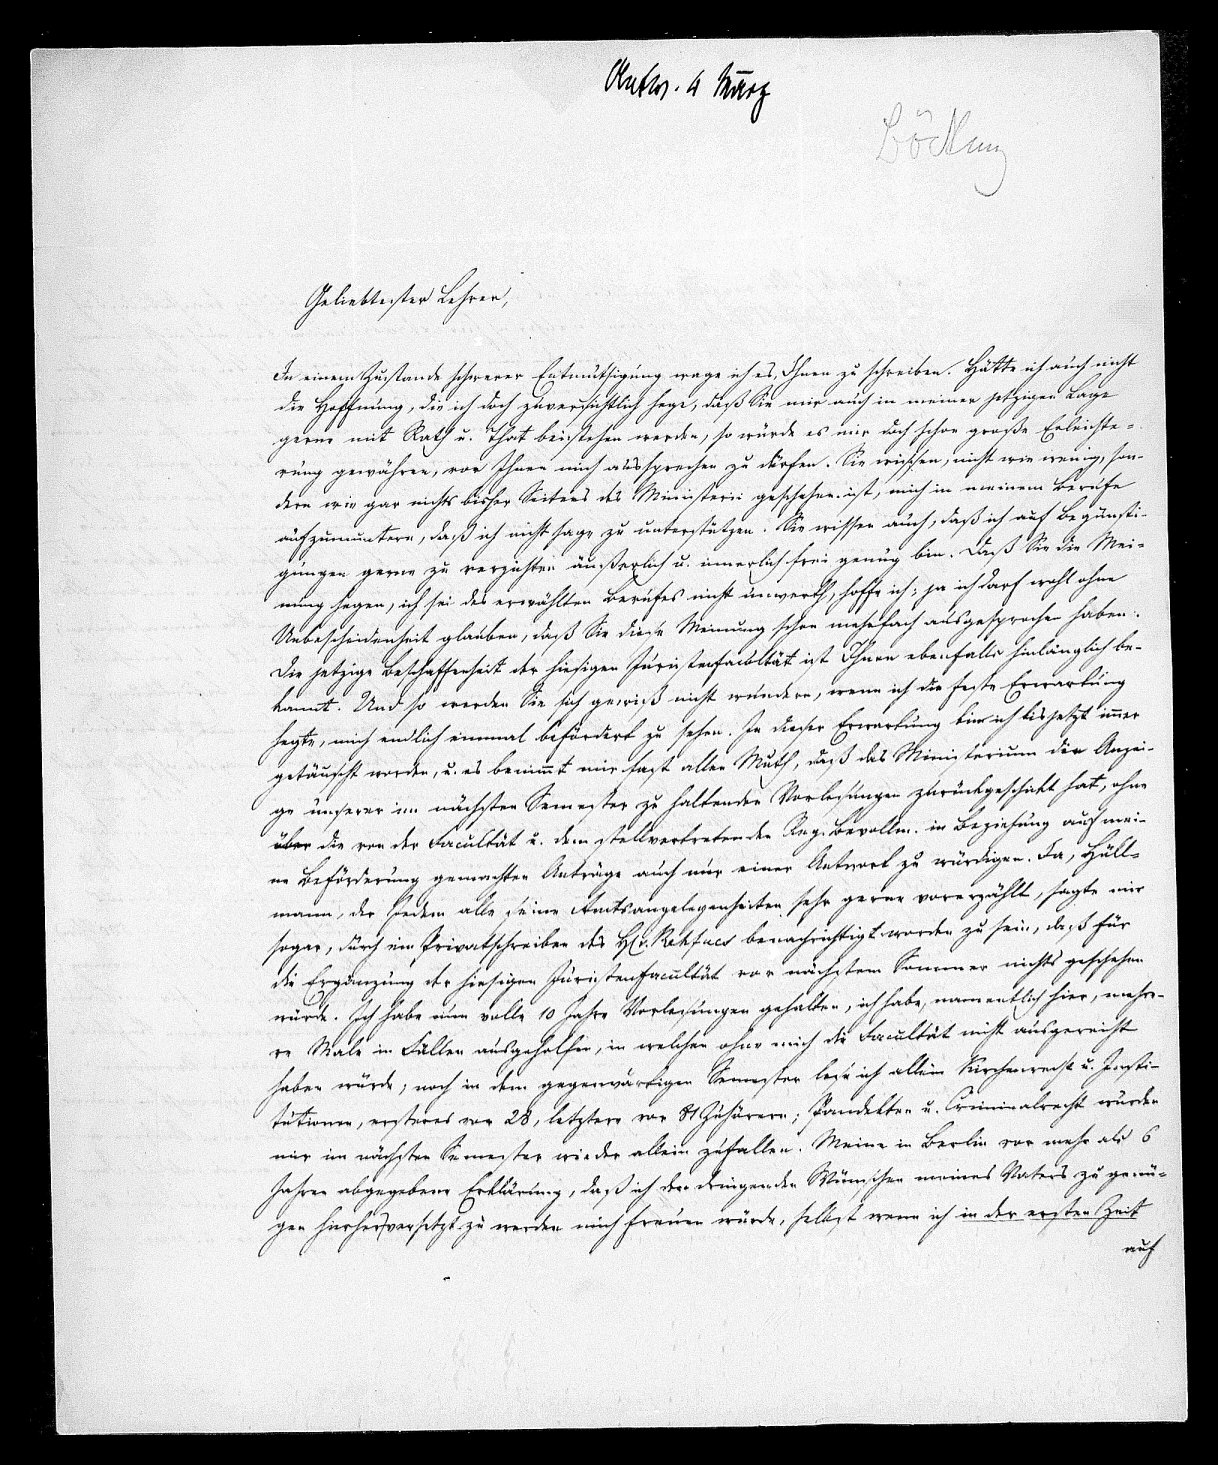 Antw. 4 März
Böcking
Geliebtester Lehrer,
In einem Zustande schwerer Entmuthigung wage ich es, Ihnen zu schreiben. Hätte ich auch nicht
die Hoffnung, die ich doch zuversichtlich hege, daß Sie mir auch in meiner jetzigen Lage
gerne mit Rath u. That beistehen werden, so würde es mir doch schon große Erleichte-
rung gewähren, vor Ihnen mich aussprechen zu dürfen. Sie wissen, nicht wie wenig, son-
dern wie gar nichts bisher Seitens des Ministerii geschehen ist, mich in meinem Berufe
aufzumuntern, daß ich nicht sage zu unterstützen. Sie wissen auch, daß ich auf Begünsti-
gungen gerne zu verzichten äußerlich u. innerlich frei genug bin. Daß Sie die Mei-
nung hegen, ich sei des erwählten Berufes nicht unwerth, hoffe ich; ja ich darf wohl ohne
Unbescheidenheit glauben, daß Sie diese Meinung schon mehrfach ausgesprochen haben.
Die jetzige Beschaffenheit der hiesigen Juristenfacultät ist Ihnen ebenfalls hinlänglich be-
kannt. Und so werden Sie sich gewiß nicht wundern, wenn ich die feste Erwartung
hegte, mich endlich einmal befördert zu sehen. In dieser Erwartung bin ich bis jetzt immer
getäuscht worden, u. es benimmt mir fast allen Muth, daß das Ministerium die Anzei-
ge unserer im nächsten Semester zu haltenden Vorlesungen zurückgeschickt hat, ohne
über die von der Facultät u. dem stellvertretenden Reg. Bevollm. in Beziehung auf mei-
ne Beförderung gemachten Anträge auch nur einer Antwort zu würdigen. Ja, Hüll-
mann, der Jedem alle seine Amtsangelegenheiten sehr gerne vorerzählt, sagte mir
sogar, durch ein Privatschreiben des H. v. Rehfues benachrichtigt worden zu sein, daß für
die Ergänzung der hiesigen Juristenfacultät vor nächstem Sommer nichts geschehen
würde. Ich habe nun volle 10 Jahre Vorlesungen gehalten, ich habe, namentlich hier, mehre-
re Male in Fällen ausgeholfen, in welchen ohne mich die Facultät nicht ausgereicht
haben würde; noch in dem gegenwärtigen Semester lese ich allein Kirchenrecht u. Insti-
tutionen, ersteres vor 28, letztere vor 81 Zuhörern; Pandekten u. Criminalrecht würden
mir im nächsten Semester wieder allein zufallen. Meine in Berlin vor mehr als 6
Jahren abgegebene Erklärung, daß ich den dringenden Wünschen meines Vaters zu genü-
gen hierher versetzt zu werden mich freuen würde, selbst wenn ich in der ersten Zeit
auf